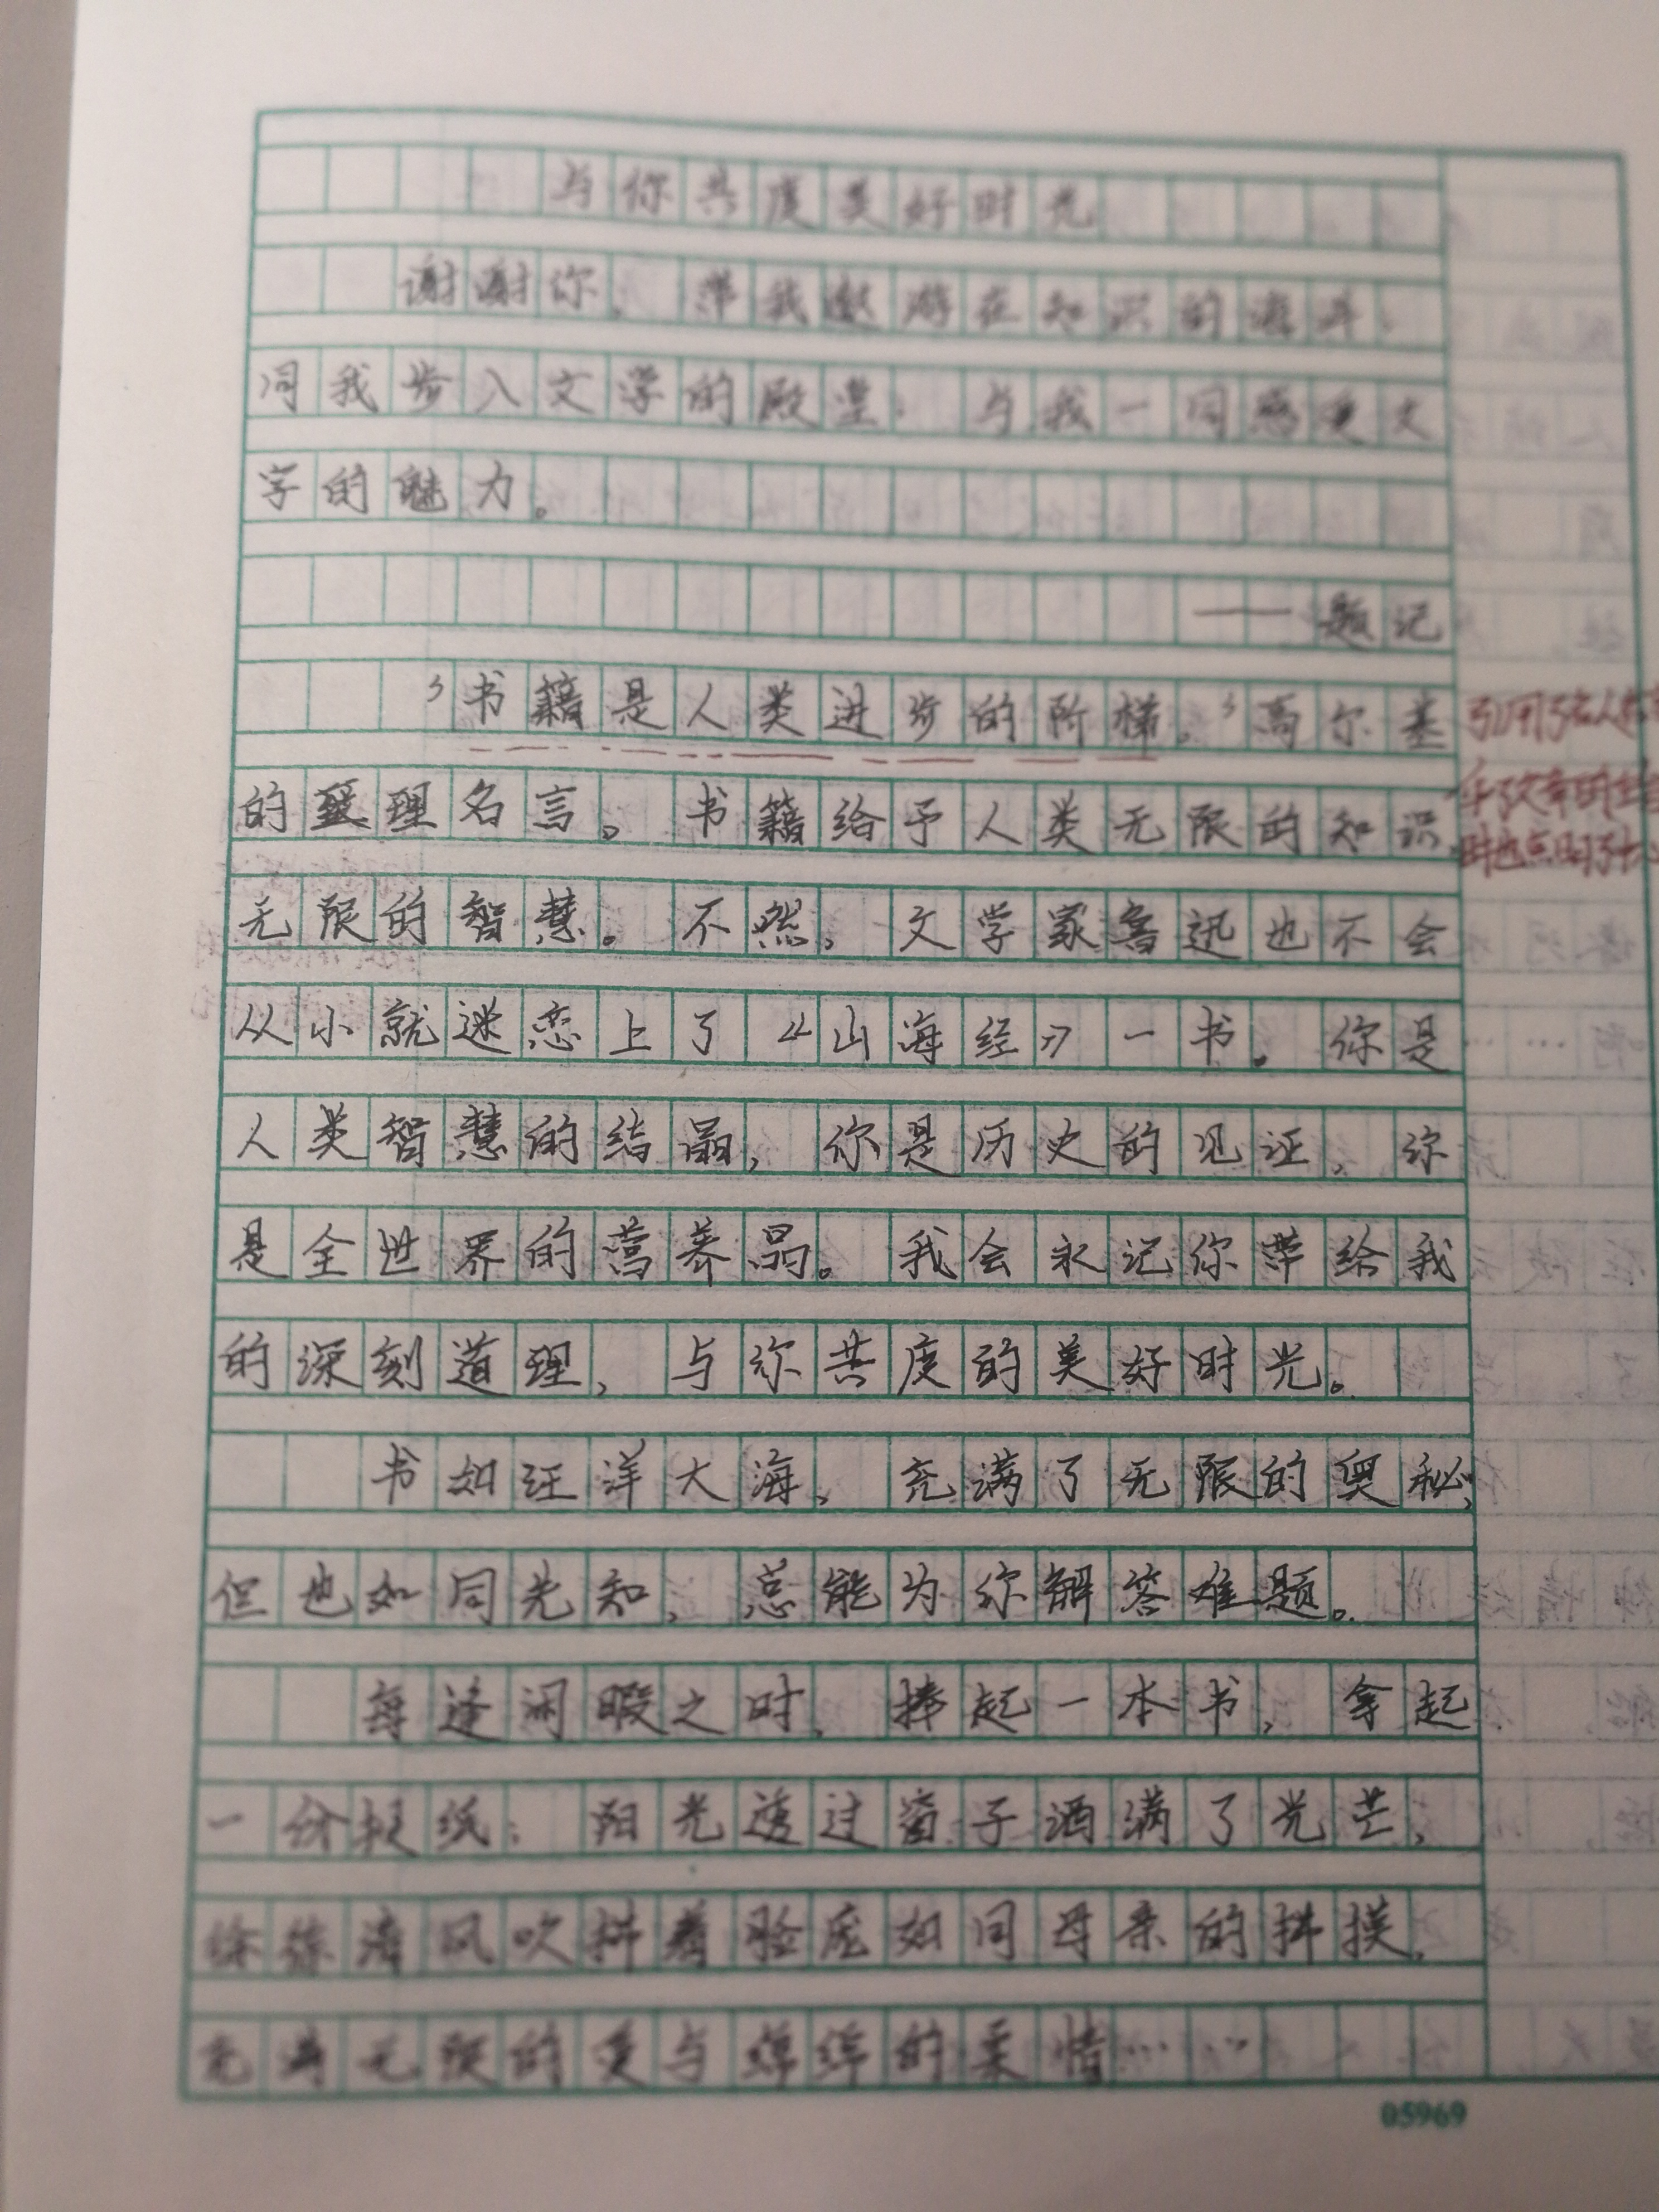 与你共度美好时光
谢谢你，带我遨游在知识的海洋，
同我步入文学的殿堂，与我一同感受文
字的魅力。
——题记
“书籍是人类进步的阶梯。”高尔基
的至理名言。书籍给予人类无限的知识
无限的智慧。不然，文学家鲁迅也不会
从小就迷恋上了《山海经》一书。你是
人类智慧的结晶，你是历史的见证，你
是全世界的营养品。我会永记你带给我
的深刻道理，与你共度的美好时光。
书如汪洋大海，充满了无限的奥秘，
但也如同先知，总能为你解答难题。
每逢闲暇之时，捧起一本书，拿起
一份报纸，阳光透过窗子洒满了光芒，
徐徐清风吹拂着脸庞如同母亲的抚摸，
充满无限的爱与绵绵的柔情……
引用了名人
时也点明了
05969